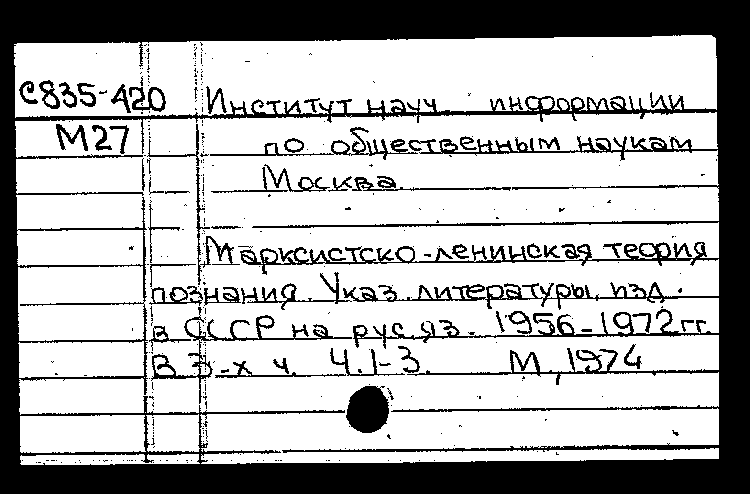 С835-420 Институт науч. информации
М27 по общественным наукам
Москва.
Марксистско-ленинская теория
познания. Указ. литературы, изд.
в СССР на рус. яз. 1956-1972 гг.
В 3-х ч. Ч.1-3. М., 1974